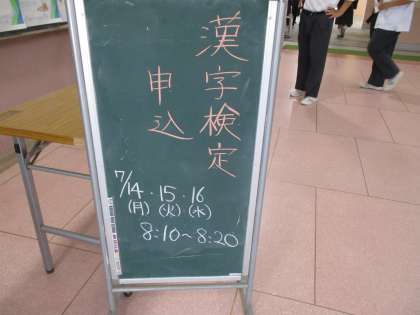 漢字検定
申込
7/14・15・16
(月)(火)(水)
8:10~8:20